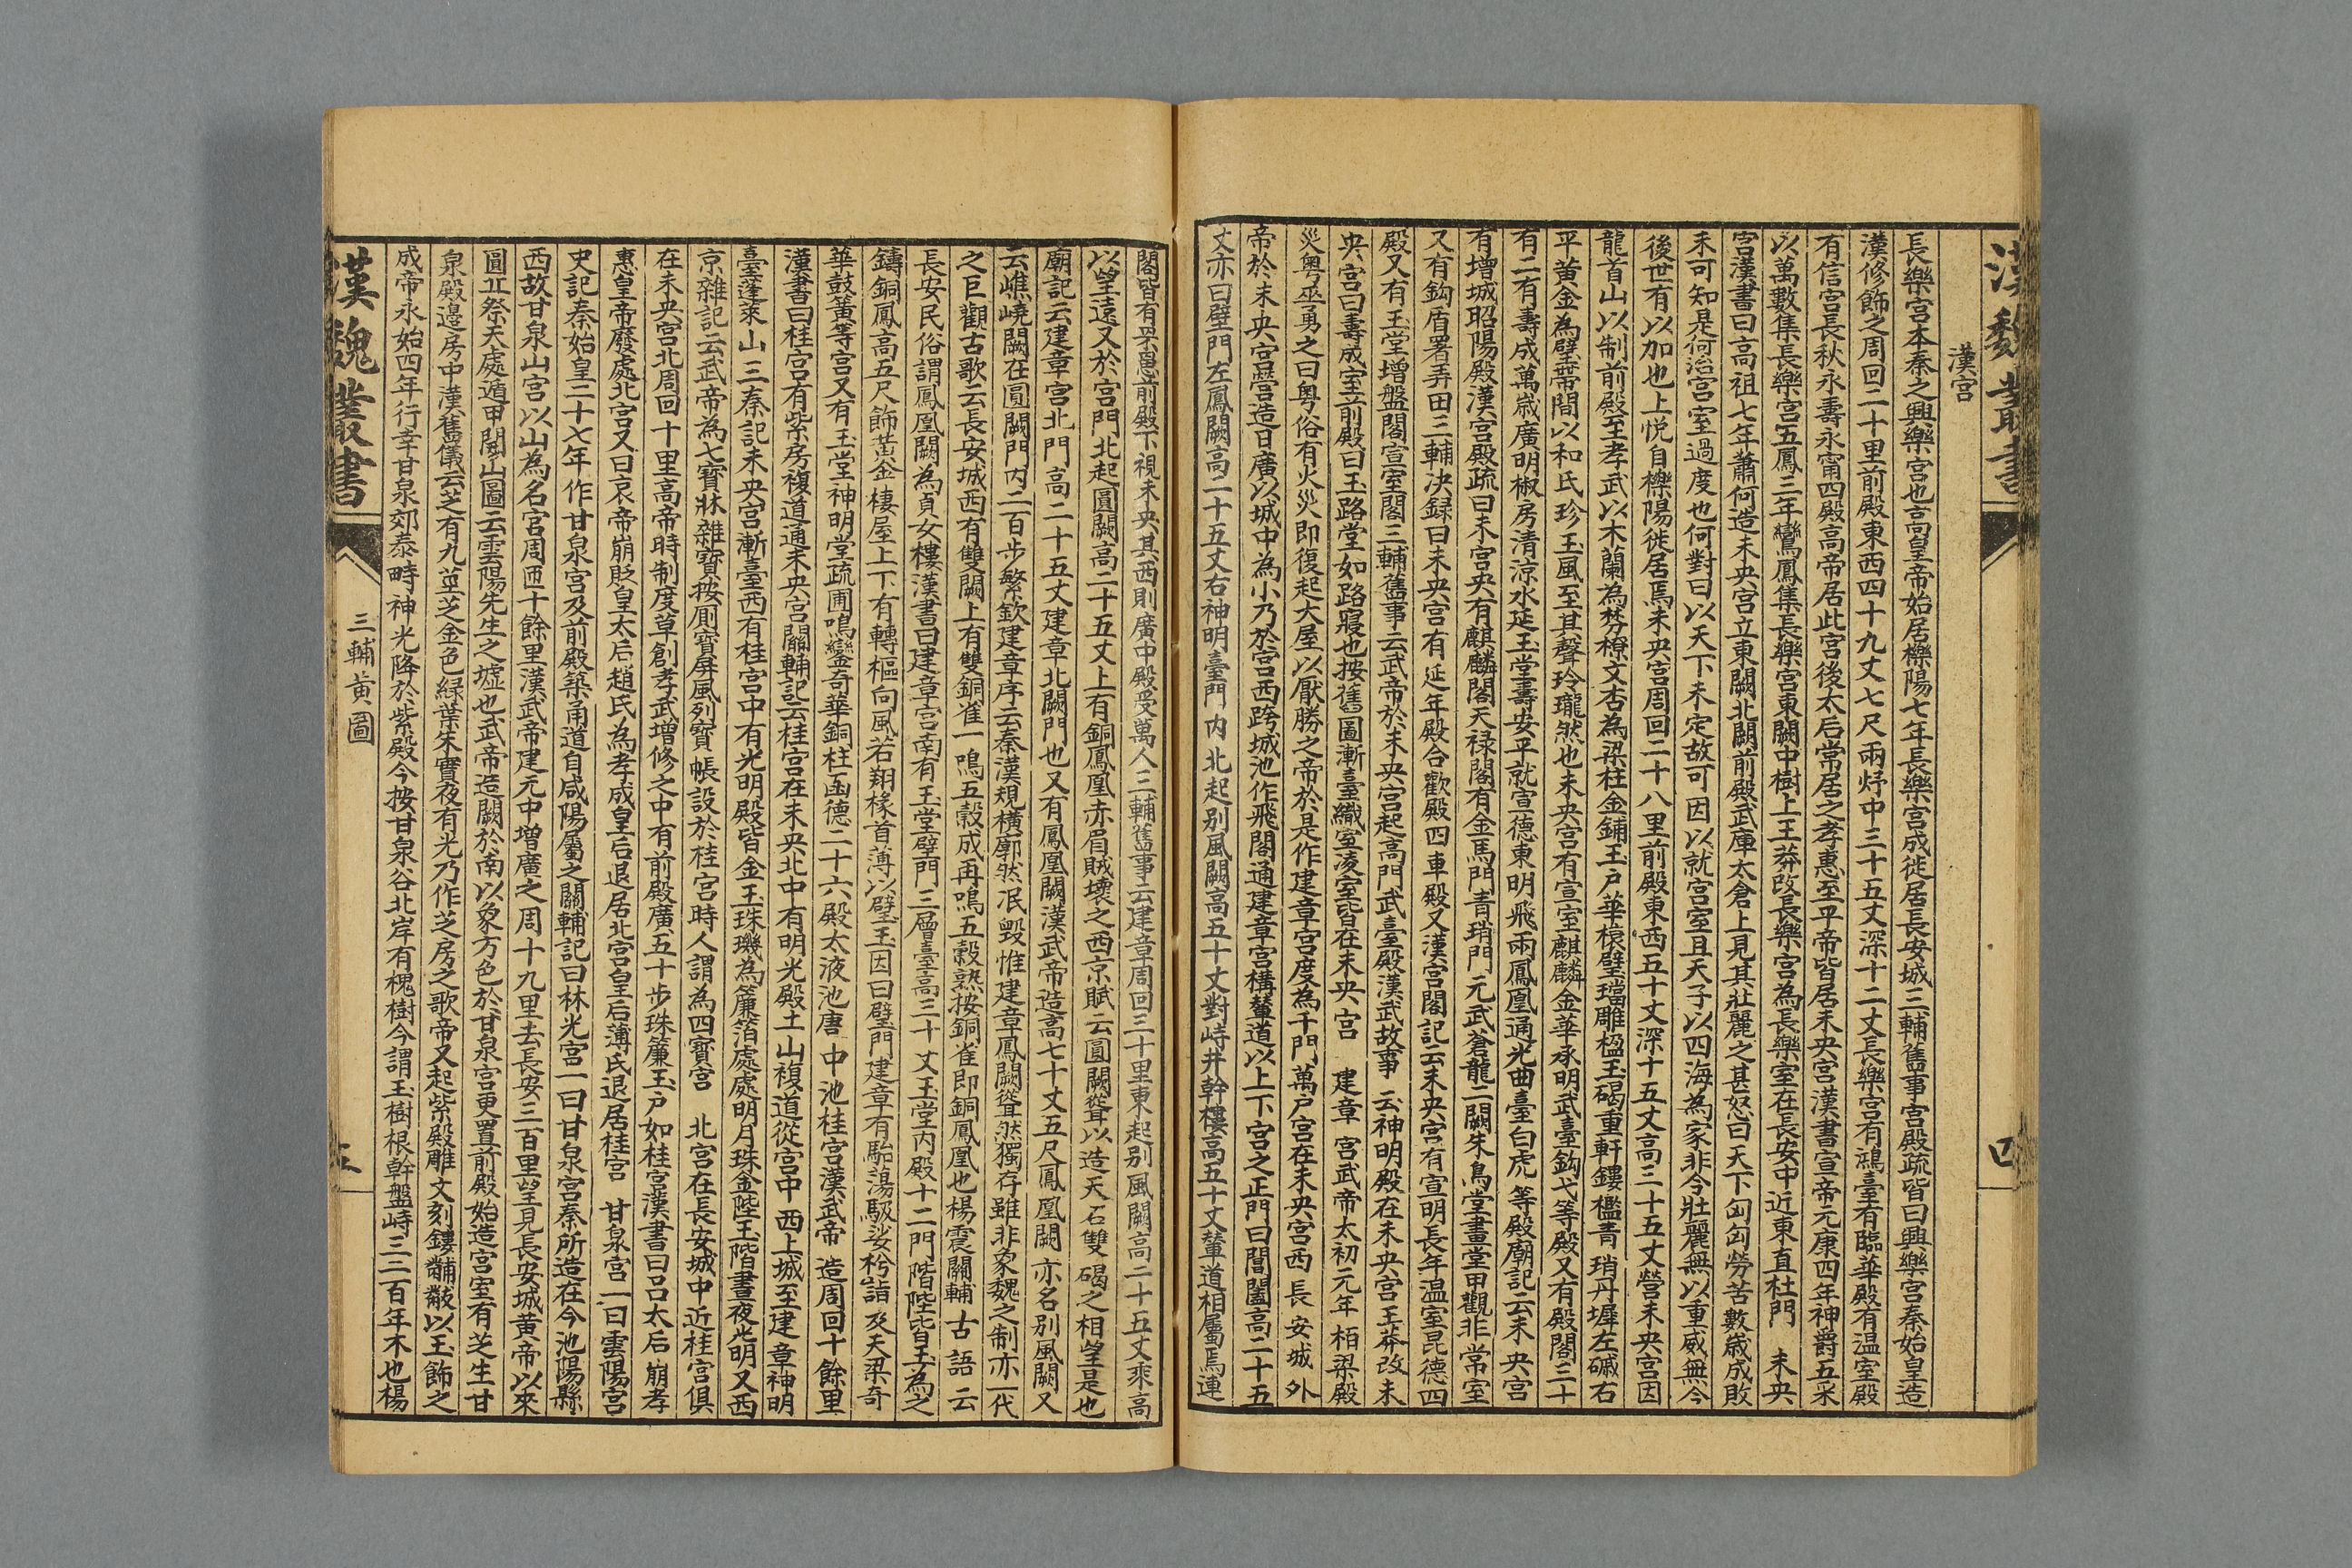 漢魏叢書
四
漢宮
長樂宮本秦之興樂宮也高皇帝始居櫟陽七年長樂宮成徙居長安城三輔舊事宮殿疏皆曰興樂宮秦始皇造
漢修飾之周回二十里前殿東西四十九丈七尺兩杼中三十五丈深十二丈長樂宮有鴻臺有臨華殿有温室殿
有信宮長秋永壽永甯四殿高帝居此宮後太后常居之孝惠至平帝皆居未央宮漢書宣帝元康四年神爵五采
以萬數集長樂宮五鳳三年鸞鳳集長樂宮東闕中樹上王莽改長樂宮為長樂室在長安中近東直杜門　未央
宮漢書曰高祖七年蕭何造未央宮立東闕北闕前殿武庫太倉上見其壯麗之甚怒曰天下匈匈勞苦數歲成敗
未可知是何治宮室過度也何對曰以天下未定故可因以就宮室且天子以四海為家非令壯麗無以重威無令
後世有以加也上悅自櫟陽徙居焉未央宮周回二十八里前殿東西五十丈深十五丈高三十五丈營未央宮因
龍首山以制前殿至孝武以木蘭為棼橑文杏為梁柱金鋪玉戶華榱璧璫雕楹玉碣重軒鏤檻青瑣丹墀左磩右
平黃金為璧帶間以和氏珍玉風至其聲玲瓏然也未央宮有宣室麒麟金華承明武臺鈎弋等殿又有殿閣三十
有二有壽成萬歲廣明椒房清涼永延玉堂壽安平就宣德東明飛雨鳳凰通光曲臺白虎等殿廟記云未央宮
有增城昭陽殿漢宮殿疏曰未宮央有麒麟閣天祿閣有金馬門青瑣門元武蒼龍二闕朱鳥堂畫堂甲觀非常室
又有鈎盾署弄田三輔決録曰未央宮有延年殿合歡殿四車殿又漢宮閣記云未央宮有宣明長年温室昆德四
殿又有玉堂增盤閣宣室閣三輔舊事云武帝於未央宮起高門武臺殿漢武故事云神明殿在未央宮王莽改未
央宮曰壽成室前殿曰王路堂如路寢也按舊圖漸臺織室凌室皆在未央宮　建章宮武帝太初元年栢梁殿
災粵巫勇之曰粵俗有火災即復起大屋以厭勝之帝於是作建章宮度為千門萬戶宮在未央宮西長安城外
帝於未央宮營造日廣以城中為小乃於宮西跨城池作飛閣通建章宮構輦道以上下宮之正門曰閶闔高二十五
丈亦曰璧門左鳳闕高二十五丈右神明臺門內北起別風闕高五十丈對峙井幹樓高五十丈輦道相屬焉連
閣皆有罘罳前殿下視未央其西則廣中殿受萬人三輔舊事云建章周回三十里東起別風闕高二十五丈乘高
以望遠又於宮門北起圓闕高二十五丈上有銅鳳凰赤眉賊壞之西京賦云圓闕聳以造天若雙碣之相望是也
廟記云建章宮北門高二十五丈建章北闕門也又有鳳凰闕漢武帝造高七十丈五尺鳳凰闕亦名別風闕又
云嶕嶢闕在圓闕門內二百步繁欽建章序云秦漢規橫廓然泯毀惟建章鳳闕聳然獨存雖非象魏之制亦一代
之巨觀古歌云長安城西有雙闕上有雙銅雀一鳴五穀成再鳴五穀熟按銅雀即銅鳳凰也楊震關輔古語云
長安民俗謂鳳凰闕為貞女樓漢書曰建章宮南有玉堂璧門三層臺高三十丈玉堂內殿十二門階陛皆玉為之
鑄銅鳳高五尺飾黃金棲屋上下有轉樞向風若翔椽首薄以璧玉因曰璧門建章有駘蕩馺娑枍詣及天梁奇
華鼓簧等宮又有玉堂神明堂疏圃鳴鑾奇華銅柱函德二十六殿太液池唐中池桂宮漢武帝造周回十餘里
漢書曰桂宮有紫房複道通未央宮關輔記云桂宮在未央北中有明光殿土山複道從宮中西上城至建章神明
臺蓬萊山三秦記未央宮漸臺西有桂宮中有光明殿皆金玉珠璣為簾箔處處明月珠金陛玉階晝夜光明又西
京雜記云武帝為七寶牀雜寶按厠寶屏風列寶帳設於桂宮時人謂為四寶宮　北宮在長安城中近桂宮俱
在未央宮北周回十里高帝時制度草創孝武增修之中有前殿廣五十步珠簾玉戶如桂宮漢書曰呂太后崩孝
惠皇帝廢處北宮又曰哀帝崩貶皇太后趙氏為孝成皇后退居北宮皇后薄氏退居桂宮　甘泉宮一曰雲陽宮
史記秦始皇二十七年作甘泉宮及前殿築甬道自咸陽屬之關輔記曰林光宮一曰甘泉宮秦所造在今池陽縣
西故甘泉山宮以山為名宮周匝十餘里漢武帝建元中增廣之周十九里去長安三百里望見長安城黃帝以來
圓丘祭天處遁甲開山圖云雲陽先生之墟也武帝造闕於南以象方色於甘泉宮更置前殿始造宮室有芝生甘
泉殿邊房中漢舊儀云芝有九莖芝金色緑葉朱實夜有光乃作芝房之歌帝又起紫殿雕文刻鏤黼黻以玉飾之
成帝永始四年行幸甘泉郊泰畤神光降於紫殿今按甘泉谷北岸有槐樹今謂玉樹根幹盤峙三二百年木也楊
漢魏叢書
三輔黃圖
五